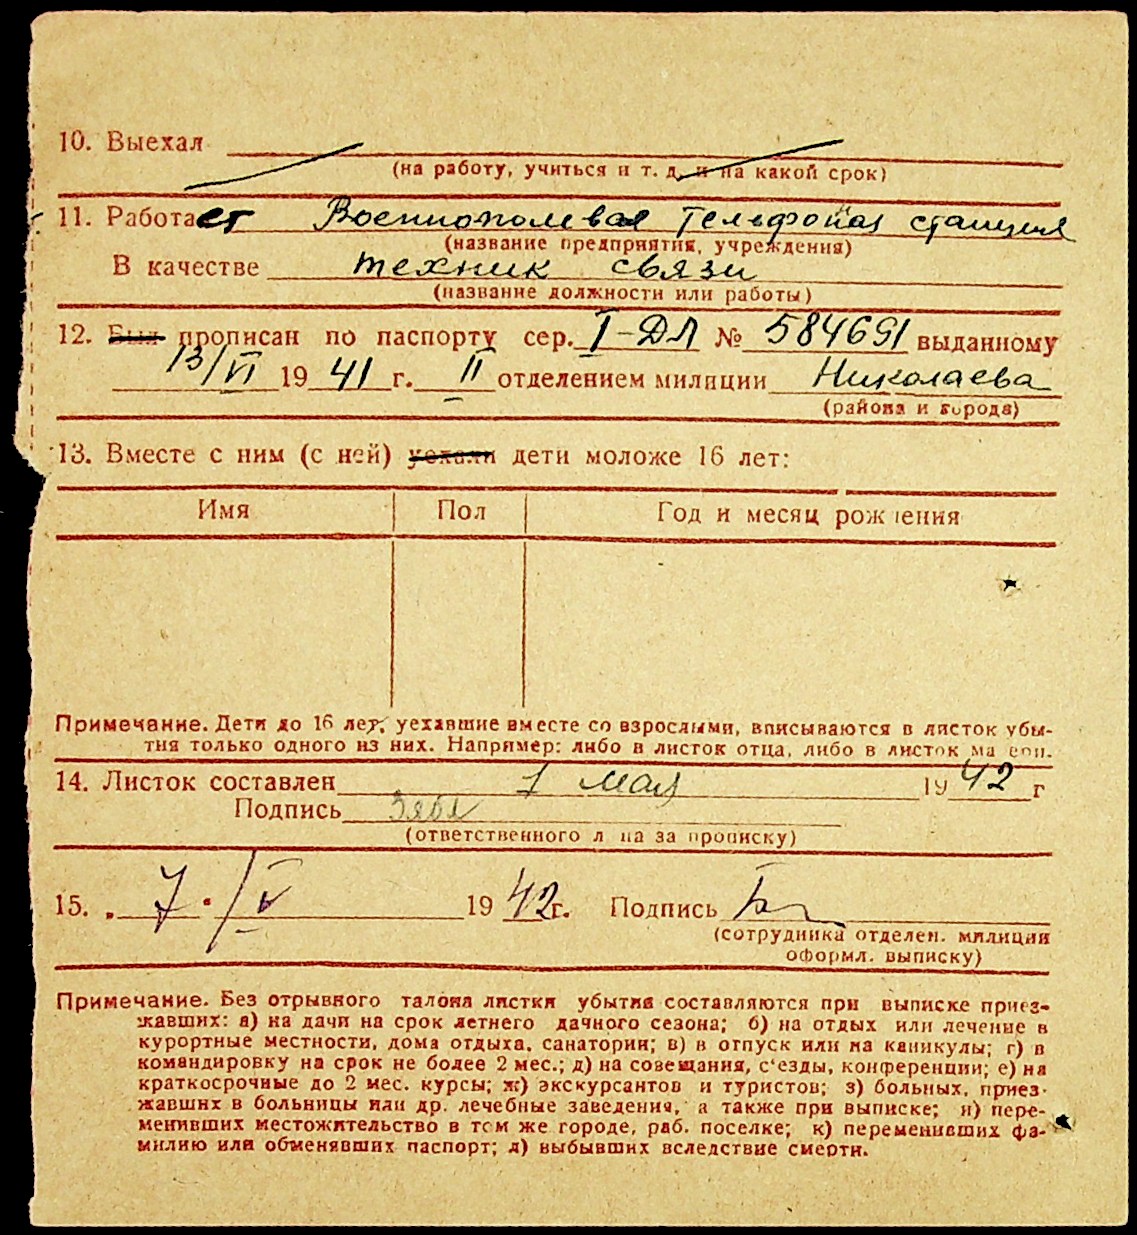 10. Выехал
(на работу, учиться и т. д. и на какой срок)
11. Работает Военнополевая Телефоная станция
(название предприятия, учреждения)
В качестве техник связи
(название должности или работы)
12. Был прописан по паспорту сер. I-ДЛ № 584691 выданному
13/VI 1941 г. II отделением милиции Николаева
(района и города)
13. Вместе с ним (с ней) уехали дети моложе 16 лет:
Имя Пол Год и месяц рождения
Примечание. Дети до 16 лет, уехавшие вместе со взрослыми, вписываются в листок убы-
тия только одного из них. Например: либо в листок отца, либо в листок ма ери.
14. Листок составлен 1 мая 1942 г
Подпись
(ответственного л ца за прописку)
15. „ 7 “ /V 1942г. Подпись
(сотрудника отделен. милиции
оформл. выписку)
Примечание. Без отрывного талона листки убытия составляются при выписке приез-
жавших: а) на дачи на срок летнего дачного сезона; б) на отдых или лечение в
курортные местности, дома отдыха, санатории; в) в отпуск или на каникулы; г) в
командировку на срок не более 2 мес.; д) на совещания, с‘езды, конференции; е) на
краткосрочные до 2 мес. курсы; ж) экскурсантов и туристов; з) больных, приез-
жавших в больницы или др. лечебные заведения, а также при выписке; и) пере-
менивших местожительство в том же городе, раб. поселке; к) переменивших фа-
милию или обменявших паспорт; л) выбывших вследствие смерти.